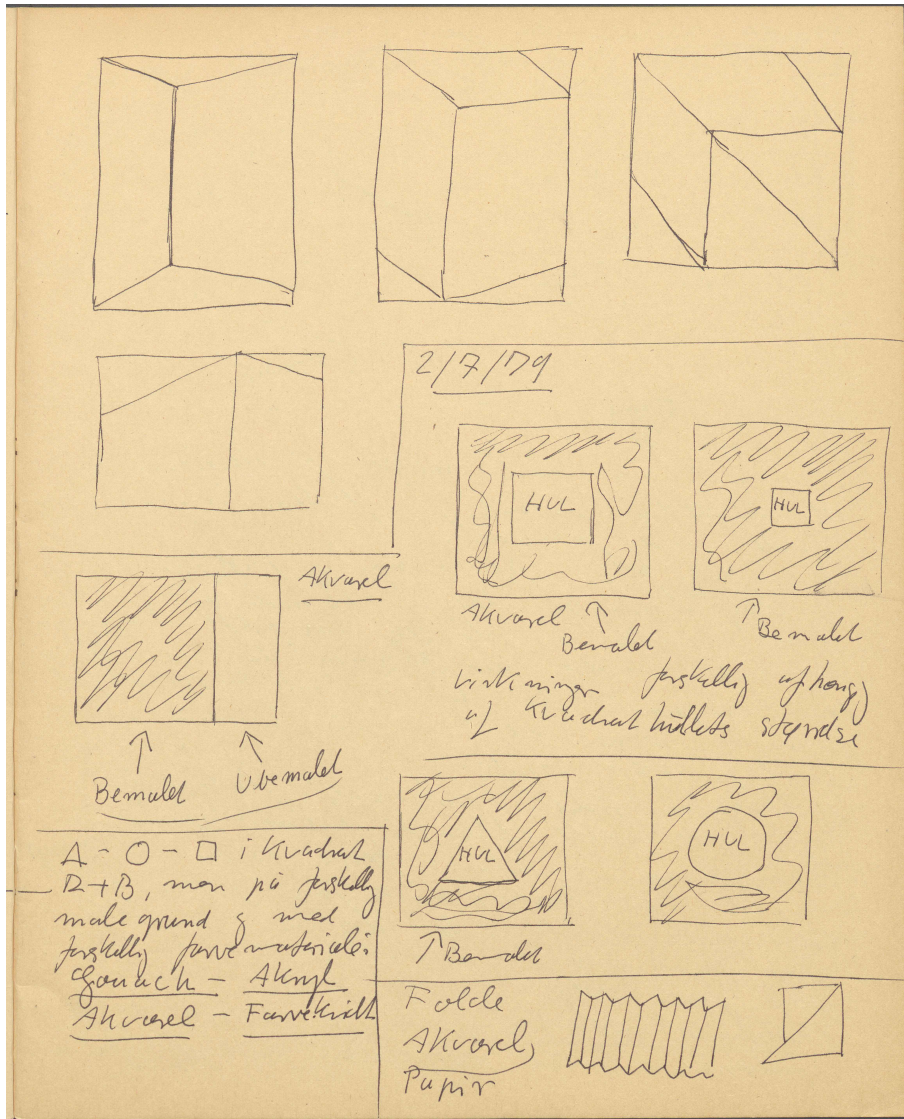 2/7/79
HUL
HUL
Akvarel
Bemalet
Bemalet
virkningen forskellig afhængig
af Kvadrathullets størrelse
Akvarel
Bemalet
Ubemalet
HUL
HUL
Bemalet
Δ - O - □ i Kvadrat
R+B, men på forskellig
malegrund og med
forskellig farvematerialer
Gouach - Akryl
Akvarel - Farvekridt
Folde
Akvarel
Papir